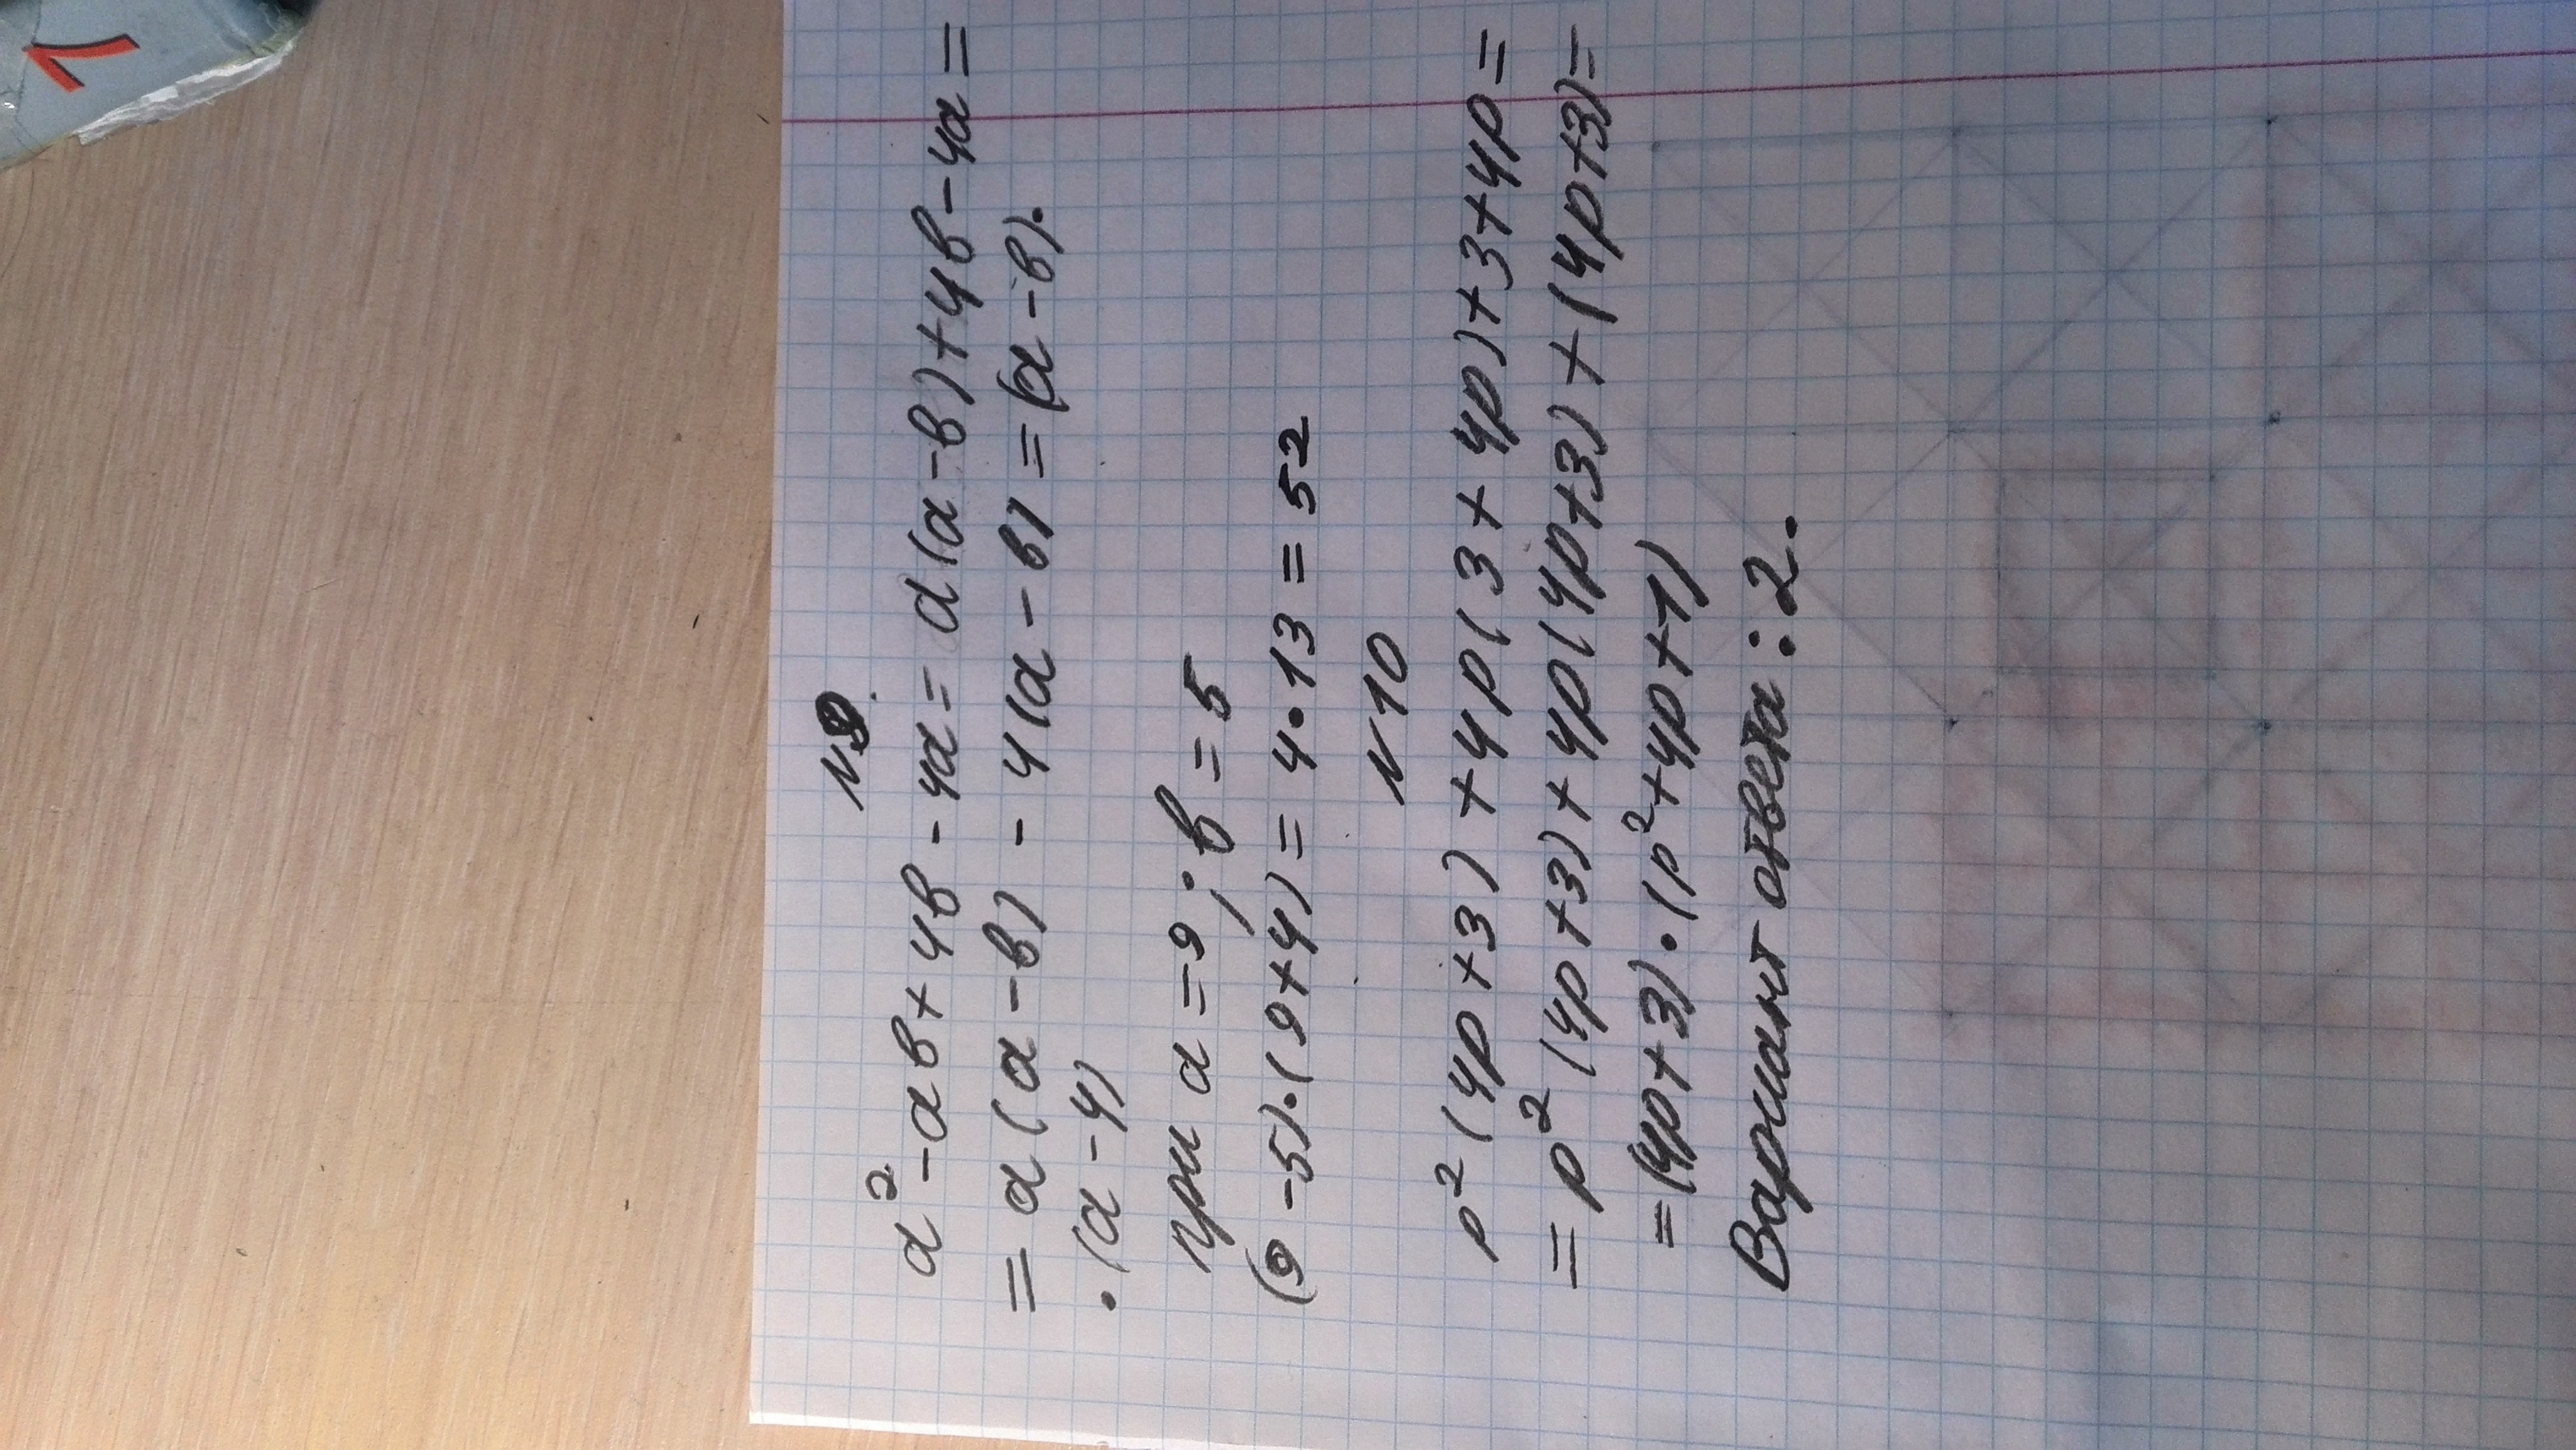 N9.
a²-ab+4b-4a=a(a-b)+4b-4a=
=a(a-b)-4(a-b)=(a-b)·
·(a-4)
при a=9; b=5
(9-5)·(9+4)=4·13=52
N10
p²(4p+3)+4p(3+4p)+3+4p=
=p²(4p+3)+4p(4p+3)+(4p+3)=
=(4p+3)·(p²+4p+1)
Вариант ответа: 2.